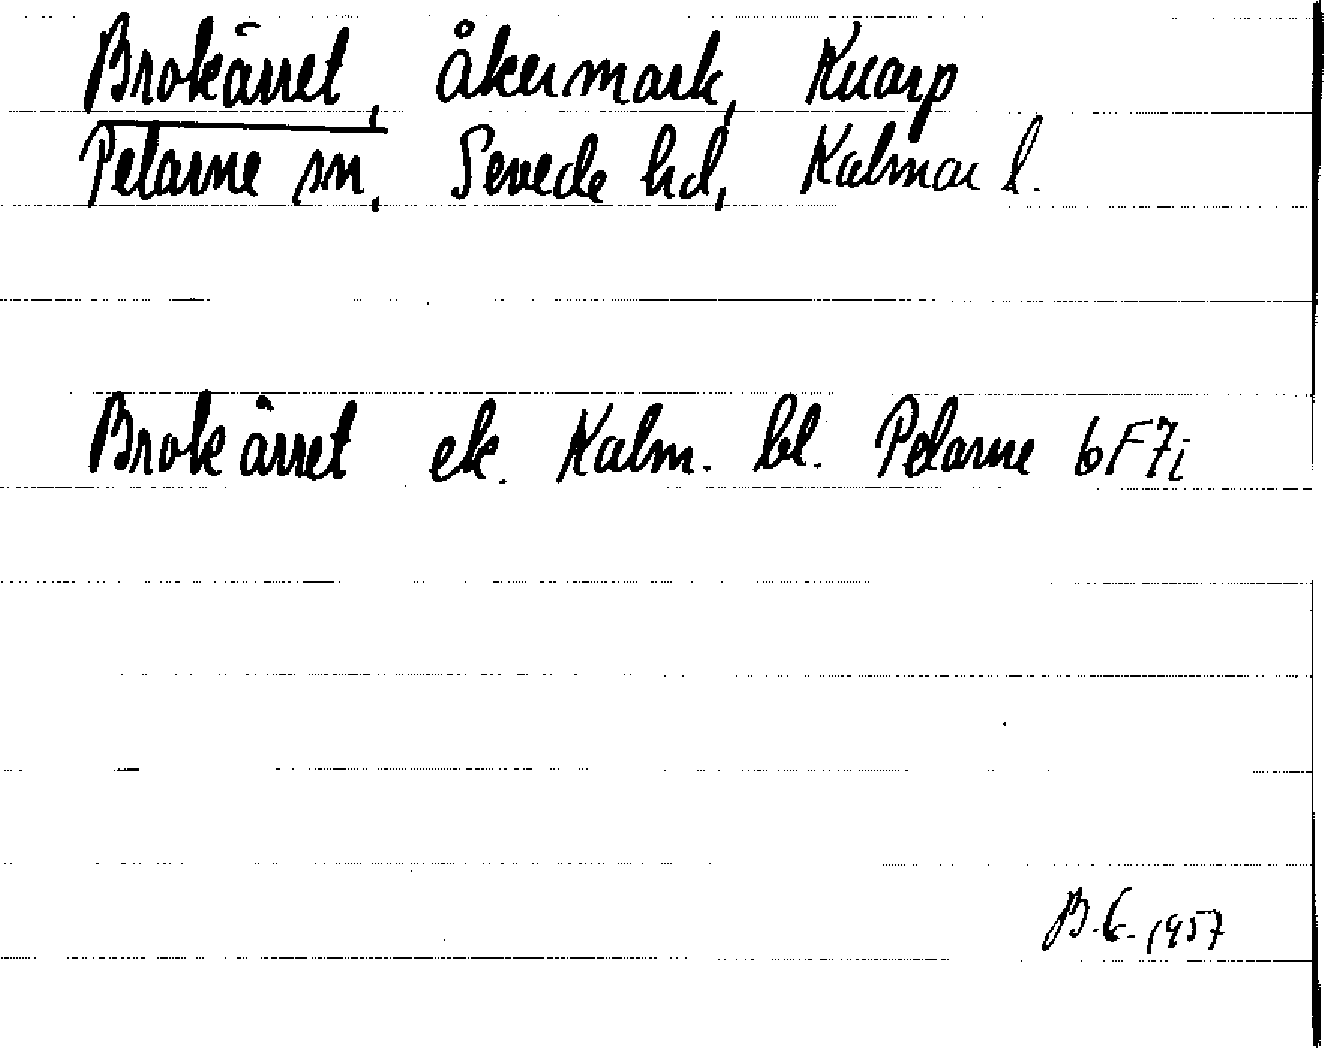 Brokärret, åkermark, Knarp
Pelarne sn, Sevede hd, Kalmar l.
Brokärret ek. Kalm. bl. Pelarne 6F7i
B.E. 1957